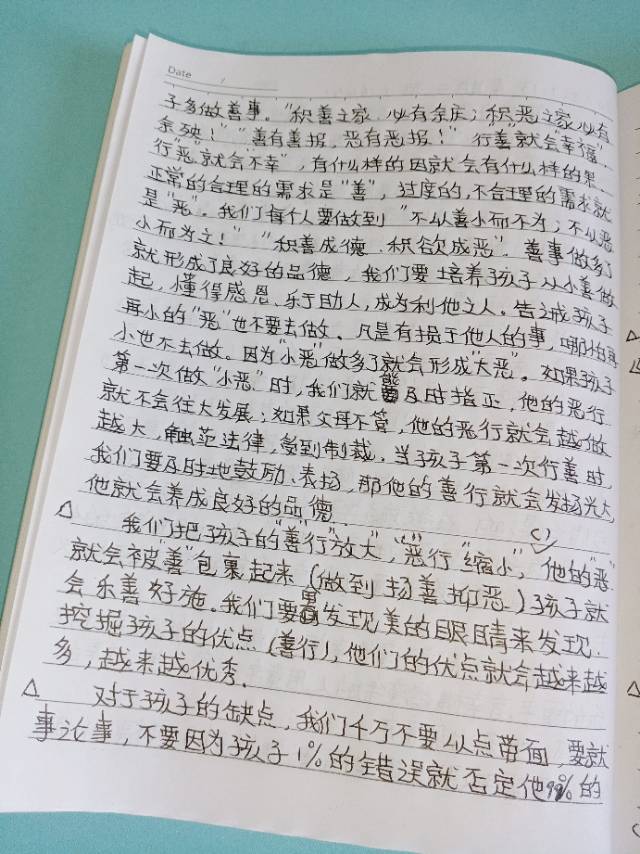 Date /
子多做善事。“积善之家，必有余庆；积恶之家，必有
余殃！”“善有善报，恶有恶报！”行善就会“幸福”，
行“恶”就会“不幸”，有什么样的因就会有什么样的果。
正常的合理的需求是“善”，过度的，不合理的需求就
是“恶”。我们每个人要做到“不以善小而不为；不以恶
小而为之！”“积善成德，积欲成恶”。善事做多了
就形成了良好的品德，我们要培养孩子从小善做
起，懂得感恩、乐于助人，成为利他之人。告诫孩子
再小的“恶”也不要去做。凡是有损于他人的事，哪怕再
小也不去做。因为“小恶”做多了就会形成“大恶”。如果孩子
第一次做“小恶”时，我们就能及时指正，他的恶行
就不会往大发展；如果父母不管，他的恶行就会越做
越大，触范法律，受到制裁。当孩子第一次行善时，
我们要及时地鼓励、表扬，那他的善行就会发扬光大，
他就会养成良好的品德。
△ 我们把孩子的“善”行“放大”，“恶”行“缩小”，他的“恶”
就会被“善”包裹起来（做到扬善抑恶。）孩子就
会乐善好施。我们要用发现美的眼睛来发现、
挖掘孩子的优点（善行），他们的优点就会越来越
多，越来越优秀。
△ 对于孩子的缺点，我们千万不要以点带面，要就
事论事，不要因为孩子1%的错误就否定他99%的